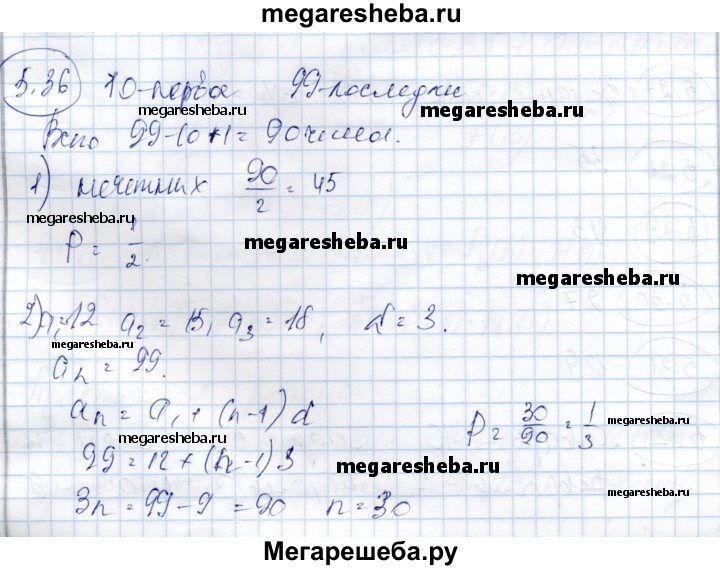 megaresheba.ru
5.36 10-первое 99-последнее
megaresheba.ru megaresheba.ru
Всего 99-10+1=90 чисел.
1) нечетных 90/2 = 45
megaresheba.ru
P = 1/2. megaresheba.ru
megaresheba.ru
2) a₁=12 a₂ = 15, a₃ = 18, d = 3.
megaresheba.ru
aₙ = 99.
aₙ = a₁ + (n-1)d P = 30/90 = 1/3 megaresheba.ru
megaresheba.ru
99 = 12 + (n-1)3 megaresheba.ru
3n = 99 - 9 = 90 n = 30 megaresheba.ru
Мегарешеба.ру